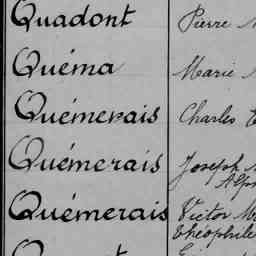 Quadont Pierre
Quéma Marie
Quémerais Charles
Quémerais Joseph
Alph
Quémerais Victor M
théophile